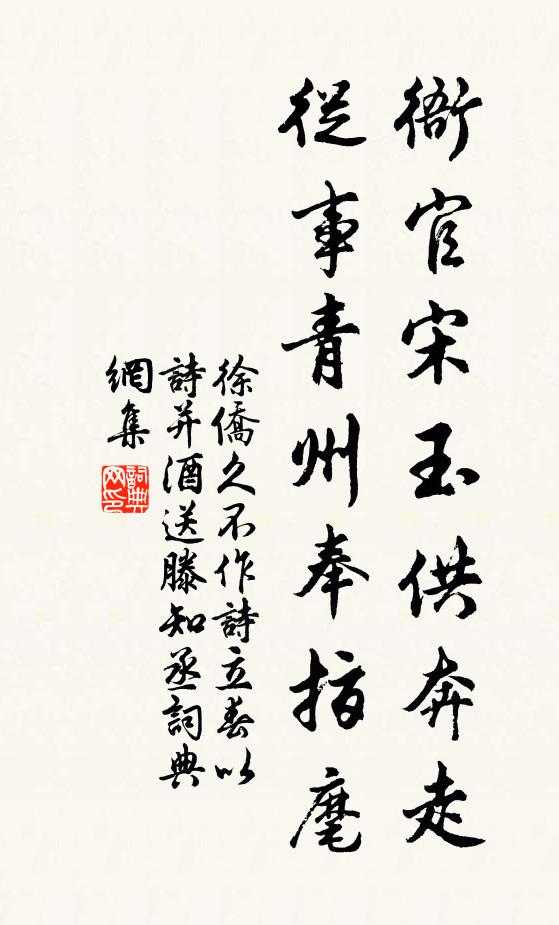 衙官宋玉供奔走
從事青州奉指麾
徐僑久不作詩立春以
詩并酒送滕知丞詞典
網集
詞典
网印